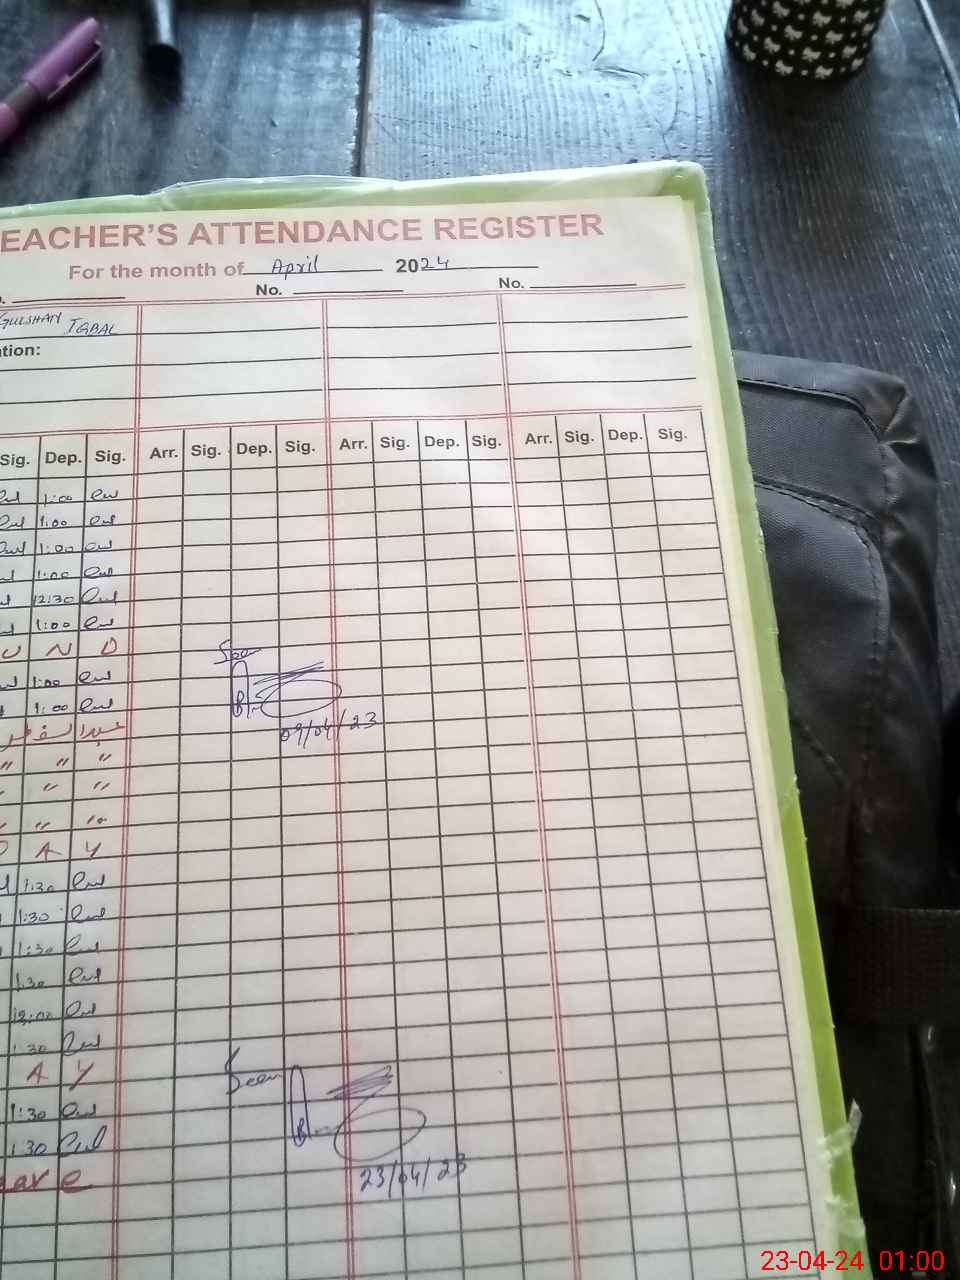 EACHER'S ATTENDANCE REGISTER
For the month of April 2024
No. No.
GULSHAN IQBAL
tion:
Sig. Dep. Sig. Arr. Sig. Dep. Sig. Arr. Sig. Dep. Sig. Arr. Sig. Dep. Sig.
1:00
1:00
1:00
1:00
12:30
1:00
U N D
Seen
1:00
1:00
09/04/23
عید الفطر
" " "
" " "
" " "
A Y
1:30
1:30
1:30
1:30
12:00
1:30
A Y
Seen
1:30
1:30
23/04/23
eave
23-04-24 01:00